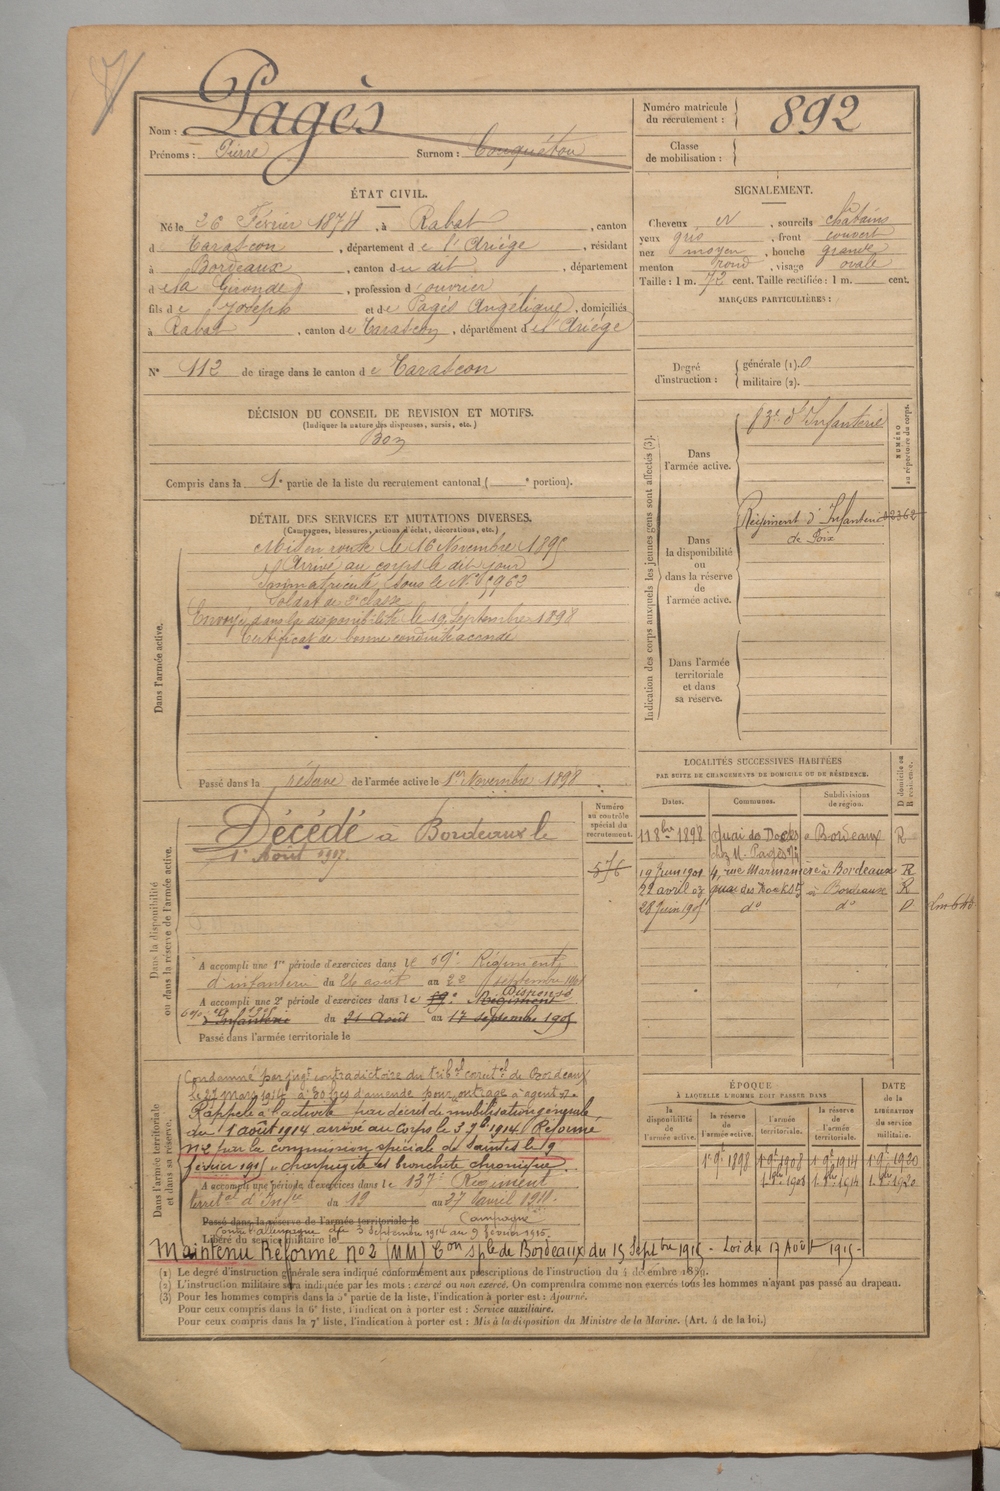 Nom : Pagès
Prénoms : Pierre Surnom : Couquétou
Numéro matricule du recrutement : 892
Classe de mobilisation :
ÉTAT CIVIL.
Né le 26 Février 1874, à Rabat, canton
d Tarascon, département de l'Ariège, résidant
à Bordeaux, canton du dit, département
d e la Gironde, profession d'ouvrier
fils de Joseph et de Pagès Angélique, domiciliés
à Rabat, canton de Tarascon, département de l'Ariège
N° 112 de tirage dans le canton de Tarascon
DÉCISION DU CONSEIL DE REVISION ET MOTIFS.
(Indiquer la nature des dispenses, sursis, etc.)
Bon
Compris dans la 1e partie de la liste du recrutement cantonal ( e portion).
DÉTAIL DES SERVICES ET MUTATIONS DIVERSES.
(Campagnes, blessures, actions d'éclat, décorations, etc.)
Dans l'armée active.
Mis en route le 16 Novembre 1895
Arrivé au corps le dit jour
Immatriculé sous le N°
Soldat de 2e classe
Envoyé dans la disponibilité le 19 Septembre 1898
Certificat de bonne conduite accordé
Passé dans la réserve de l'armée active le 1er Novembre 1898
SIGNALEMENT.
Cheveux et, sourcils châtains
yeux gris, front couvert
nez moyen, bouche grande
menton rond, visage ovale
Taille : 1 m. 72 cent. Taille rectifiée : 1 m. cent.
MARQUES PARTICULIÈRES :
Degré d'instruction : générale (1). 0
militaire (2).
Indication des corps auxquels les jeunes gens sont affectés (3).
NUMÉRO au répertoire du corps.
Dans l'armée active.
83e d'Infanterie
Dans la disponibilité ou dans la réserve de l'armée active.
Régiment d'Infanterie
de Foix
Dans l'armée territoriale et dans sa réserve.
LOCALITÉS SUCCESSIVES HABITÉES
PAR SUITE DE CHANGEMENTS DE DOMICILE OU DE RÉSIDENCE.
Dates. Communes. Subdivisions de région. D domicile ou R résidence.
11 8bre 1898 Quai des Docks à Bordeaux R
chez M. Pagès
19 Juin 1901 4, rue Marmanière à Bordeaux R
22 avril 07 quai des Docks à Bordeaux R
28 Juin 1905 do do D
Dans la disponibilité ou dans la réserve de l'armée active.
Numéro au contrôle spécial du recrutement.
Décédé à Bordeaux le
1er Août
576
A accompli une 1re période d'exercices dans le 59e Régiment
d'infanterie du 26 août au 22 septembre 1901
A accompli une 2e période d'exercices dans le 59e Régiment Dispensé
d'Infanterie du 21 Août au 17 septembre 1905
Passé dans l'armée territoriale le
Dans l'armée territoriale et dans sa réserve.
Condamné par jugt contradictoire du tribal correctel de Bordeaux
le 27 Mars 1914 à 80 frcs d'amende pour outrage à agent
Rappelé à l'activité par décret de mobilisation générale
du 1 août 1914 arrivé au Corps le 3 7bre 1914 Réformé
N°2 par la commission spéciale de Saintes le 9
février 1915 bronchite chronique.
A accompli une période d'exercices dans le 137e Régiment
territal d'Infie du 19 au 27 avril 1911.
Passé dans la réserve de l'armée territoriale le Campagne
contre l'allemagne du 3 Septembre 1914 au 9 février 1915.
Libéré du service militaire le
Maintenu Réformé n°2 (MM) Con sple de Bordeaux du 15 Septbre 1915 - Loi du 17 Août 1915 -
ÉPOQUE
À LAQUELLE L'HOMME DOIT PASSER DANS
la disponibilité de l'armée active. la réserve de l'armée active. l'armée territoriale. la réserve de l'armée territoriale.
DATE de la LIBÉRATION du service militaire.
1er 9bre 1898 1er 9bre 1908 1er 9bre 1914 1er 9bre 1920
1er 8bre 1908 1er 8bre 1914 1er 8bre 1920
(1) Le degré d'instruction générale sera indiqué conformément aux prescriptions de l'instruction du 4 décembre 1889.
(2) L'instruction militaire sera indiquée par les mots : exercé ou non exercé. On comprendra comme non exercés tous les hommes n'ayant pas passé au drapeau.
(3) Pour les hommes compris dans la 5e partie de la liste, l'indication à porter est : Ajourné.
Pour ceux compris dans la 6e liste, l'indication à porter est : Service auxiliaire.
Pour ceux compris dans la 7e liste, l'indication à porter est : Mis à la disposition du Ministre de la Marine. (Art. 4 de la loi.)